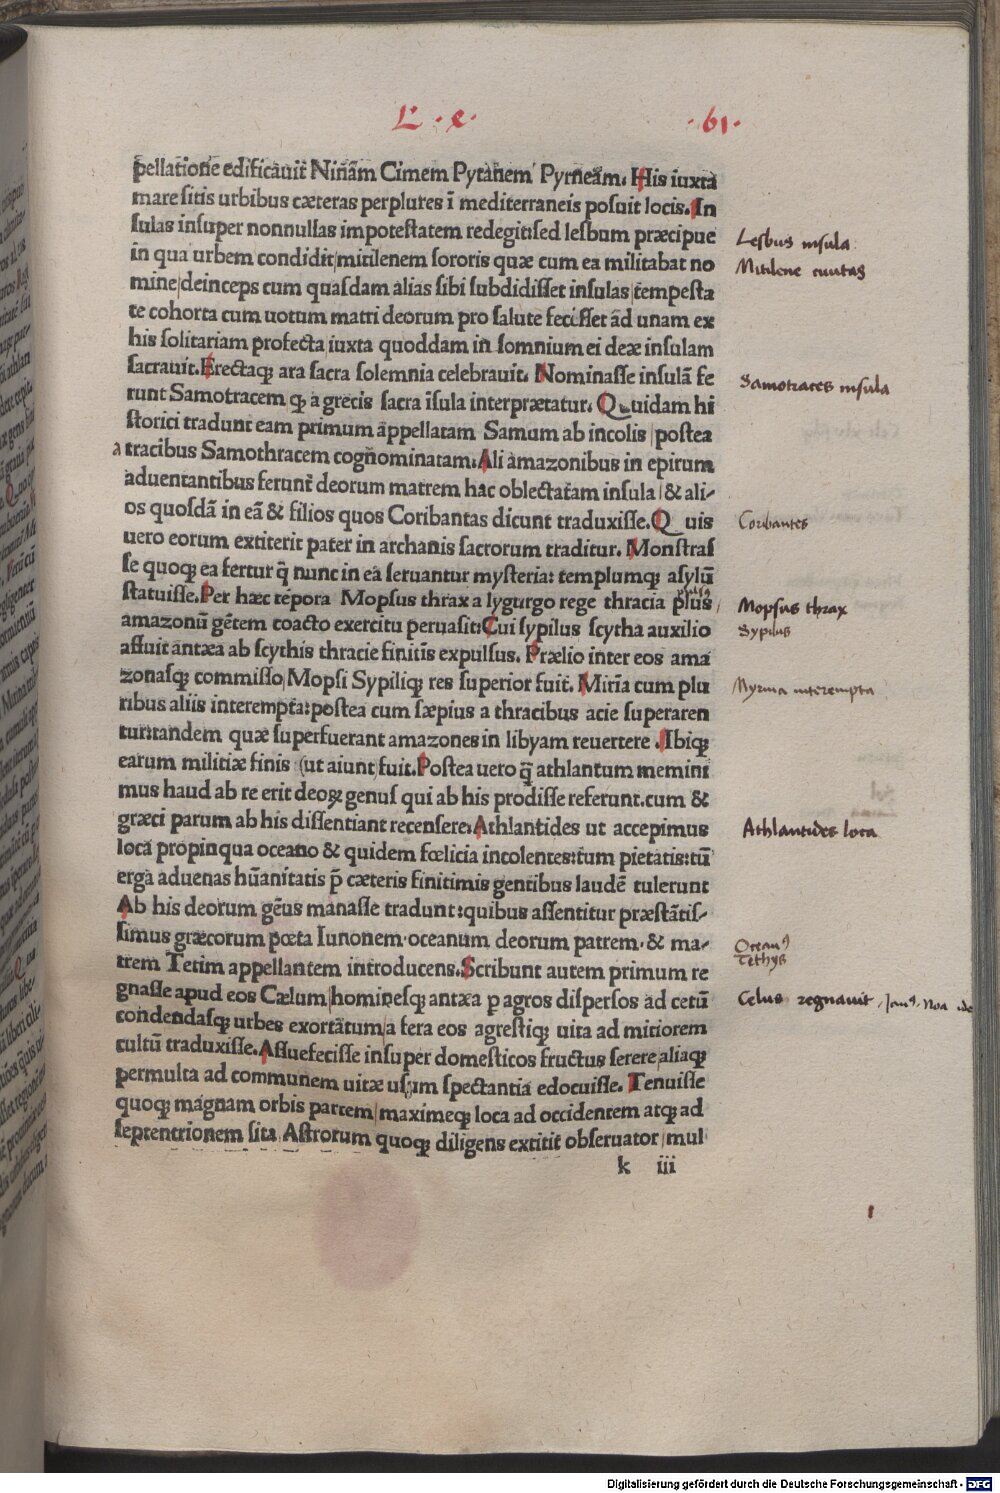 L · e · · 61 ·
pellatione edificauit Ninam Cimem Pytanem Pyrneam. His iuxta
mare sitis urbibus cæteras perplures ī mediterraneis posuit locis. In
sulas insuper nonnullas impotestatem redegit:sed lesbum præcipue
in qua urbem condidit/mitilenem sororis quæ cum ea militabat no
mine/deinceps cum quasdam alias sibi subdidisset insulas/tempesta
te cohorta cum uotum matri deorum pro salute fecisset ad unam ex
his solitariam profecta iuxta quoddam in somnium ei deæ insulam
sacrauit. Erectaqꝫ ara sacra solemnia celebrauit. Nominasse insulā fe
runt Samotracem qꝫ a grecis sacra īsula interprætatur. Quidam hi
storici tradunt eam primum appellatam Samum ab incolis/postea
a tracibus Samothracem cognominatam. Ali amazonibus in epirum
aduentantibus ferunt deorum matrem hac oblectatam insula/& ali-
os quosdā in eā & filios quos Coribantas dicunt traduxisse. Quis
uero eorum extiterit pater in archanis sacrorum traditur. Monstras
se quoqꝫ ea fertur q̄ nunc in ea seruantur mysteria: templumqꝫ asylū
statuisse. Per hæc tēpora Mopsus thrax a lygurgo rege thracia pl̄us
amazonū gētem coacto exercitu peruasit: Cui sypilus scytha auxilio
affuit antæa ab scythis thracie finitīs expulsus. Prælio inter eos ama
zonasqꝫ commisso/Mopsi Sypiliqꝫ res superior fuit. Mirīa cum plu
ribus aliis interempta:postea cum sæpius a thracibus acie superaren
tur:tandem quæ superfuerant amazones in libyam reuertere . Ibiqꝫ
earum militiæ finis (ut aiunt) fuit. Postea uero q̄ athlantum memini
mus haud ab re erit deoꝝ genus qui ab his prodisse referunt.cum &
græci parum ab his dissentiant recensere. Athlantides ut accepimus
loca propinqua oceano & quidem fœlicia incolentes:tum pietatis:tū
erga aduenas hūanitatis p̄ cæteris finitimis gentibus laudē tulerunt
Ab his deorum gēus manasse tradunt:quibus assentitur præstātis-
simus græcorum pœta Iunonem·oceanum deorum patrem· & ma-
trem Tetim appellantem introducens. Scribunt autem primum re
gnasse apud eos Cælum/hominesqꝫ antæa ꝑ agros dispersos ad cetū
condendasqꝫ urbes exortatum/a fera eos agrestiqꝫ uita ad mitiorem
cultū traduxisse. Assuefecisse insuper domesticos fructus serere/aliaqꝫ
permulta ad communem uitæ usum spectantia edocuisse. Tenuisse
quoqꝫ magnam orbis partem/maximeqꝫ loca ad occidentem atqꝫ ad
septentrionem sita Astrorum quoqꝫ diligens extitit obseruator/mul
k iii
Lesbus insula
Mitilene ciuitas
Samotraces insula
Coribantes
Mopsus thrax
Sypilus
Myrina interempta
Athlantides loca
Oceanꝰ
Tethys
Celus regnauit
Digitalisierung gefördert durch die Deutsche Forschungsgemeinschaft - DFG